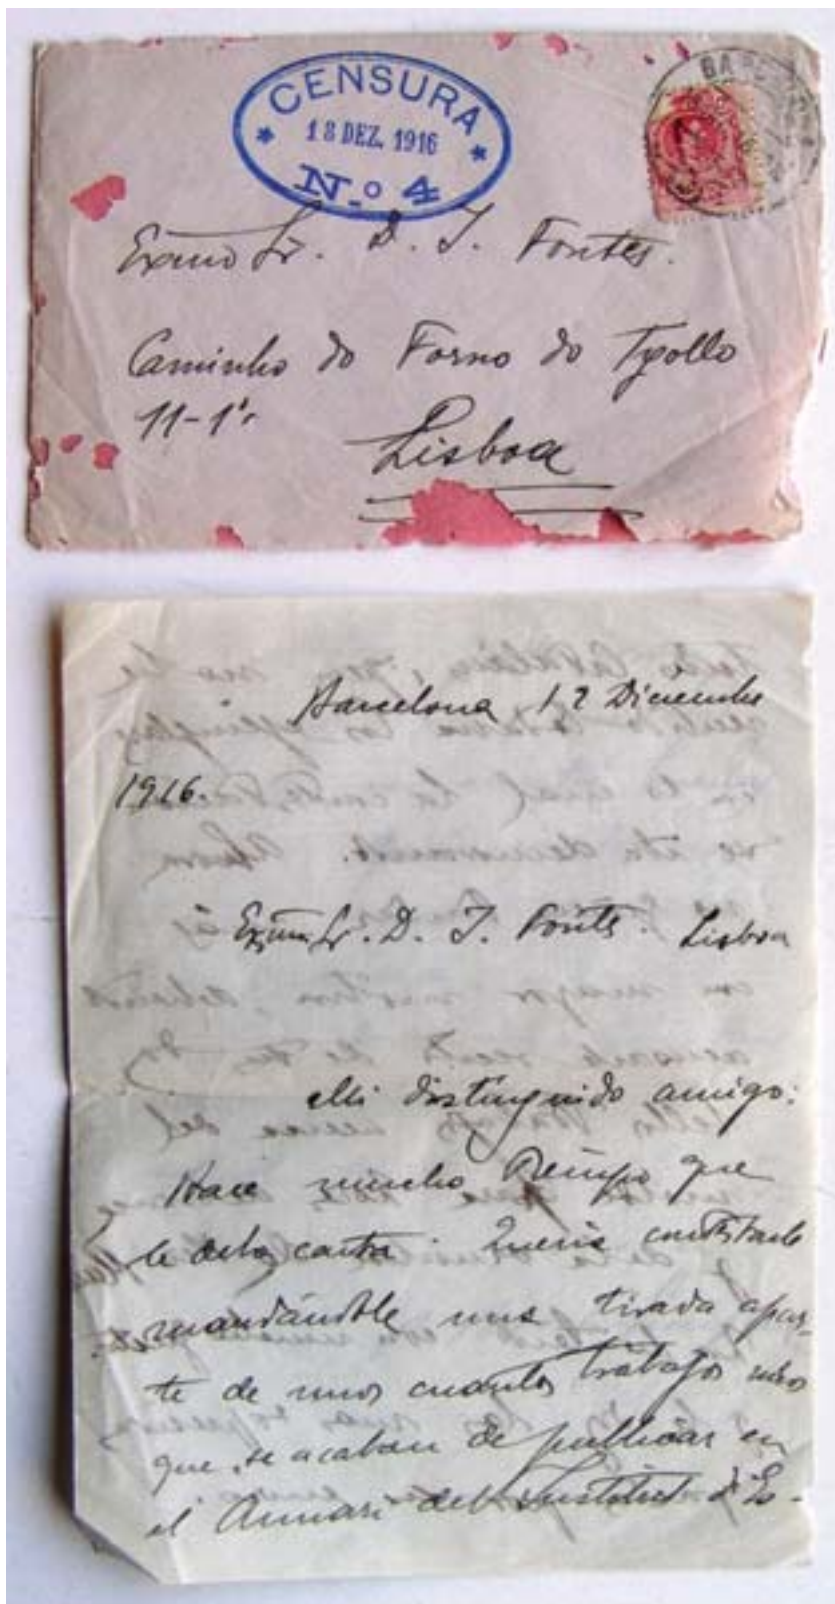 CENSURA
18 DEZ. 1916
N.º 4
BARCELONA
Exmo Sr. D. J. Fontes.
Caminho do Forno do Tijollo
11-1º
Lisboa
Barcelona 12 Diciembre
1916.
Exmo Sr. D. J. Fontes. Lisboa
Mi distinguido amigo:
Hace mucho tiempo que
le debo carta. Queria contestarle
mandándole una tirada apar-
te de unos cuantos trabajos mios
que se acaban de publicar en
el Anuari del Institut d'Es-